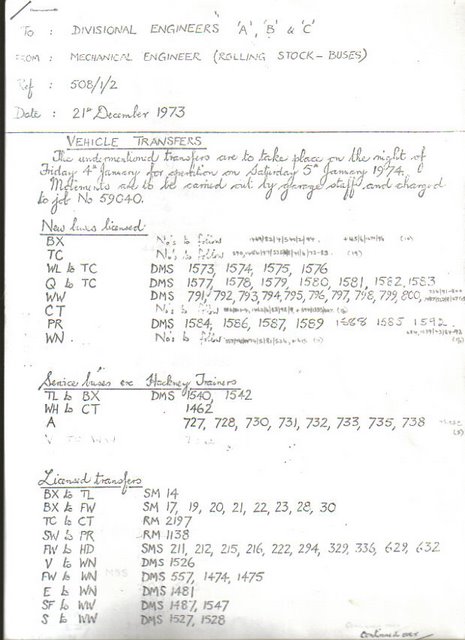 TO : DIVISIONAL ENGINEERS 'A', 'B' & 'C'
FROM : MECHANICAL ENGINEER (ROLLING STOCK-BUSES)
Ref : 508/1/2
Date : 21st December 1973
VEHICLE TRANSFERS
The undermentioned transfers are to take place on the night of
Friday 4th January for operation on Saturday 5th January 1974.
Movements are to be carried out by garage staff and charged
to job No 59040.
New buses licensed
BX No's to follow
TC No's to follow
WL to TC DMS 1573, 1574, 1575, 1576
Q to TC DMS 1577, 1578, 1579, 1580, 1581, 1582, 1583
WW DMS 791, 792, 793, 794, 795, 796, 797, 798, 799, 800,
CT No's to follow
PR DMS 1584, 1586, 1587, 1589 1588 1585 1592
WN No's to follow
Service buses ex Hackney Trainers
TL to BX DMS 1540, 1542
WH to CT 1462
A 727, 728, 730, 731, 732, 733, 735, 738
V TO WW
Licensed transfers
BX to TL SM 14
BX to FW SM 17, 19, 20, 21, 22, 23, 28, 30
TC to CT RM 2197
SW to PR RM 1138
FW to HD SMS 211, 212, 215, 216, 222, 294, 329, 336, 629, 632
V to WN DMS 1526
FW to WN DMS 557, 1474, 1475
E to WN DMS 1481
SF to WW DMS 1487, 1547
S to WW DMS 1527, 1528
Continued over